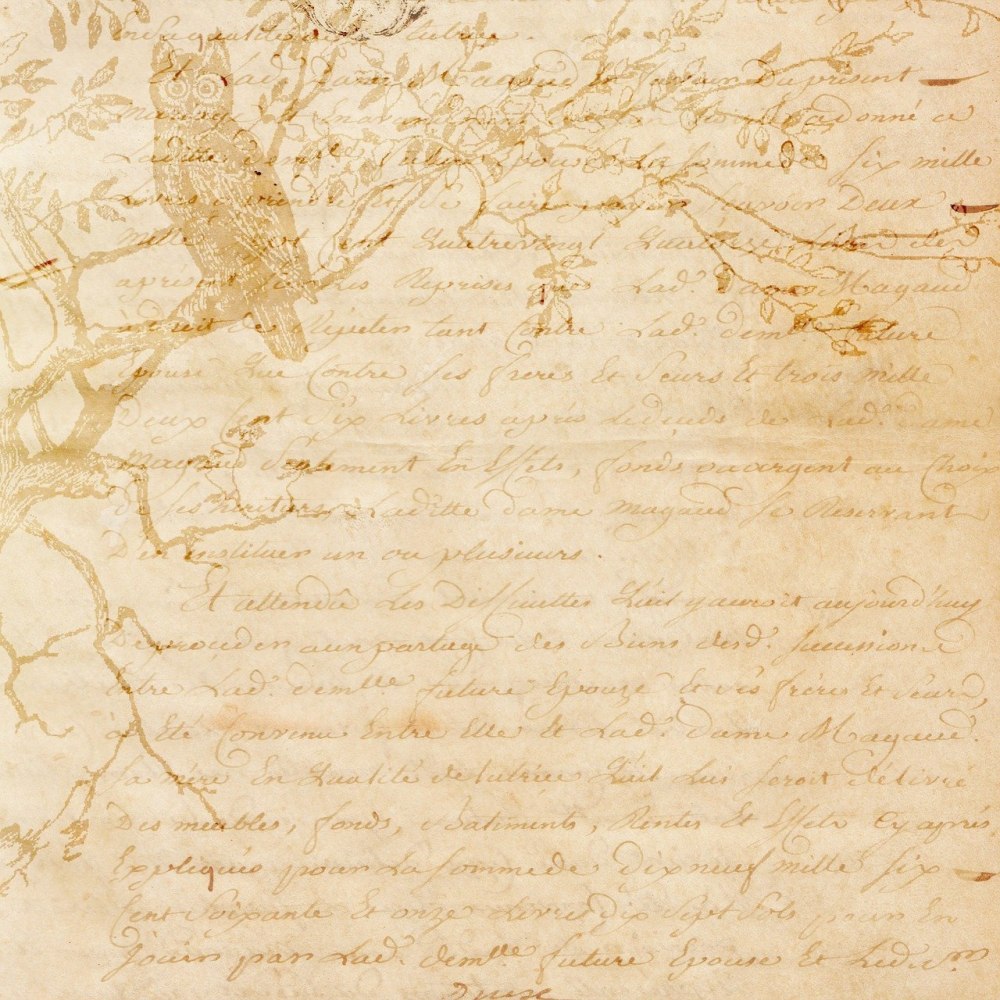 en la qualité de tutrice.
Et lad. dame Magaud En faveur Du présent
mariage Et donné a
Laditte demlle future Epouse La Somme de six mille
Livres a prendre Et Se savoir Deux
mille Cent Quatrevingt Quatorze Livres
après Les Reprises que Lad. Dame Magaud
a droit de Rejetter tant Contre Lad. demlle future
Epouse Que Contre ses freres Et Seurs Et trois mille
Deux Cent Six Livres après Le décés de Lad. Dame
Magaud Seulement En Effets, fonds ou argent au Choix
De ses heritiers, Laditte dame magaud se Reservant
D'en instituer un ou plusieurs.
Et attendû Les Difficultes Quil y auroit aujourd'huy
De proceder au un partage des Biens desd. succession
Entre Lad. demlle future Epouze Et ses freres Et sœurs,
a Eté Convenu Entre Elle Et Lad. Dame Magaud.
Sa mère En Qualité de tutrice Quil Lui seroit délivré
Des meubles, fonds, Batiments, Rentes Et Effets Cy après
Expliqués pour La Somme de Dix neuf mille six
Cent Soixante Et onze Livres Dix Sept Sols pour En
Jouir par Lad. demlle future Epouse Et Led.